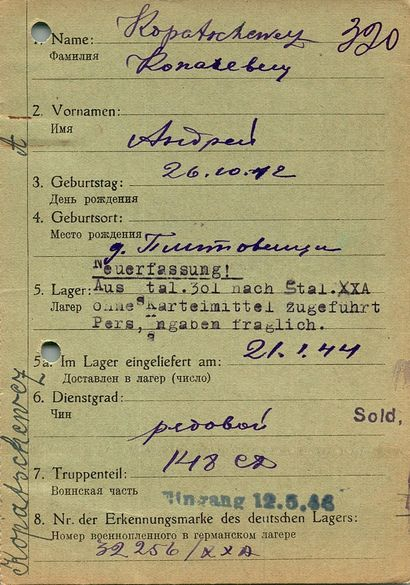 Kopatschewez 320
1. Name:
Фамилия Копачевец
2. Vornamen:
Имя
Андрей
3. Geburtstag: 26.10.12
День рождения
4. Geburtsort:
Место рождения д.
Neuerfassung!
5. Lager: Aus Stal.301 nach Stal.XXA
Лагер ohne Karteimittel zugeführt
Pers, Angaben fraglich.
5a. Im Lager eingeliefert am: 21.1.44
Доставлен в лагер (число)
6. Dienstgrad:
Чин рядовой Sold,
7. Truppenteil: 148 сд
Воинская часть Eingang 12.5.46
8. Nr. der Erkennungsmarke des deutschen Lagers:
Номер военнопленного в германском лагере
32256/XXA
Kopatschewez A